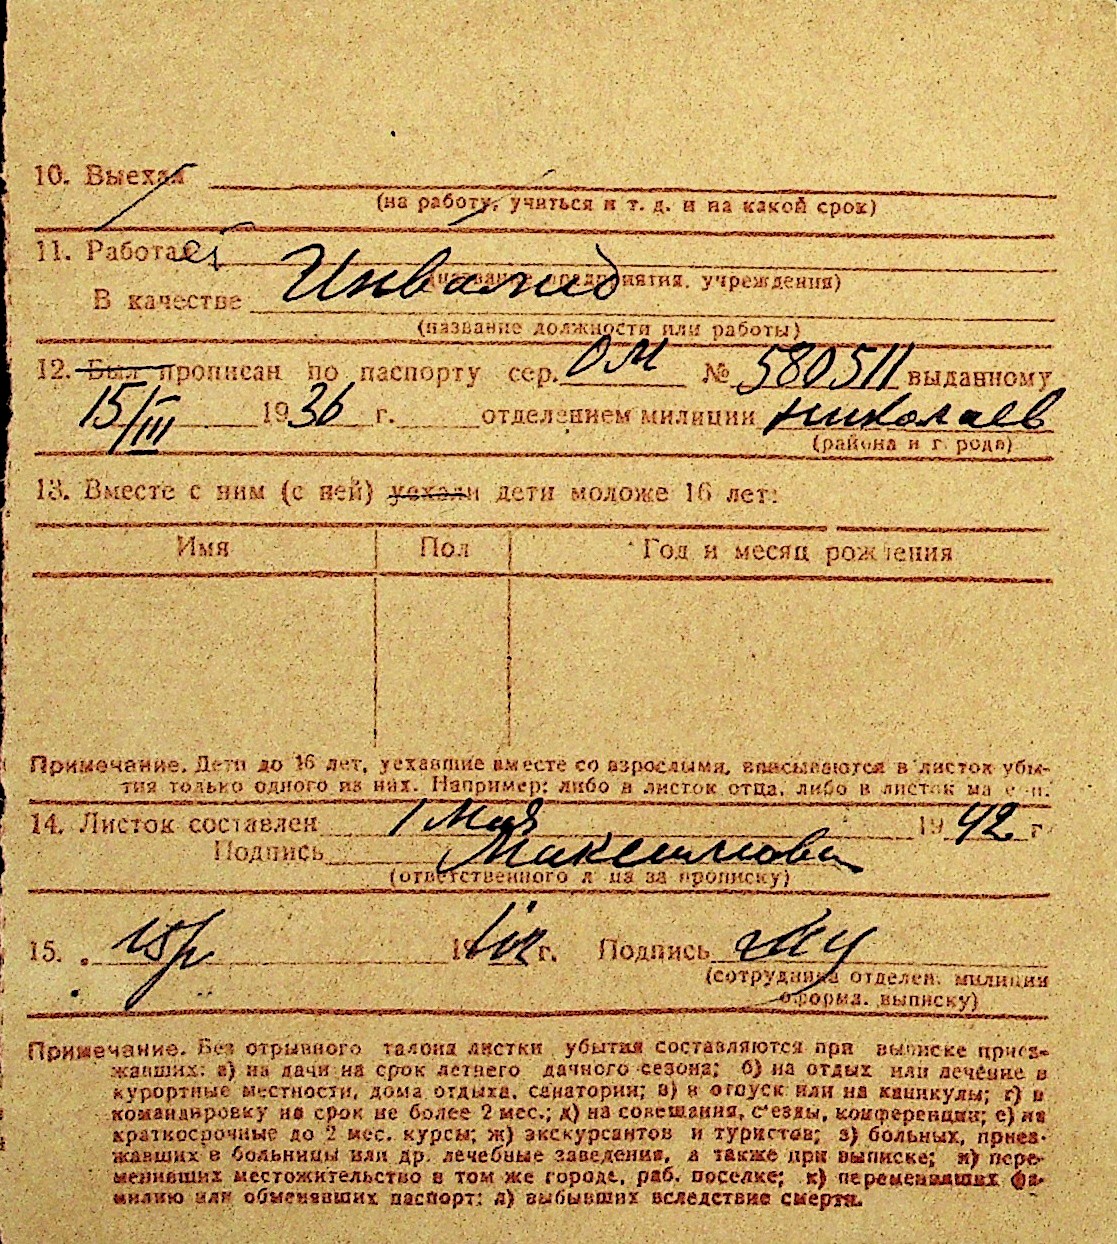 10. Выехал
(на работу, учиться и т. д. и на какой срок)
11. Работает Инвалид
(название предприятия, учреждения)
В качестве
(название должности или работы)
12. Был прописан по паспорту сер. ОМ № 580511 выданному
15/III 1936 г. отделением милиции Николаев
(района и города)
13. Вместе с ним (с ней) уехали дети моложе 16 лет:
Имя Пол Год и месяц рождения
Примечание. Дети до 16 лет, уехавшие вместе со взрослыми, вписываются в листок убы-
тия только одного из них. Например: либо в листок отца, либо в листок матери.
14. Листок составлен 1 Мая 1942 г
Подпись Максимова
(ответственного лица за прописку)
15. 19 г. Подпись
(сотрудника отделен. милиции
оформл. выписку)
Примечание. Без отрывного талона листки убытия составляются при выписке приез-
жавших: а) на дачи на срок летнего дачного сезона; б) на отдых или лечение в
курортные местности, дома отдыха, санатории; в) в отпуск или на каникулы; г) в
командировку на срок не более 2 мес.; д) на совещания, съезды, конференции; е) на
краткосрочные до 2 мес. курсы; ж) экскурсантов и туристов; з) больных, приез-
жавших в больницы или др. лечебные заведения, а также при выписке; и) пере-
менивших местожительство в том же городе, раб. поселке; к) переменивших фа-
милию или обменявших паспорт; л) выбывших вследствие смерти.